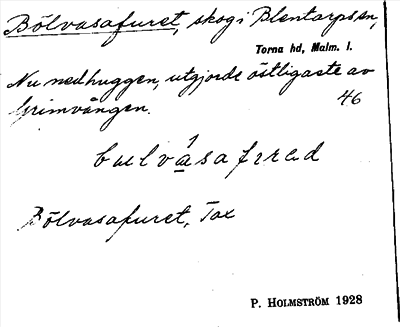 Bölvasafuret, skog i Blentarpsn,
Torna hd, Malm. l.
Nu nedhuggen, utgjorde östligaste av
Grimvången. 46
Bölvasafuret, Tax
P. HOLMSTRÖM 1928